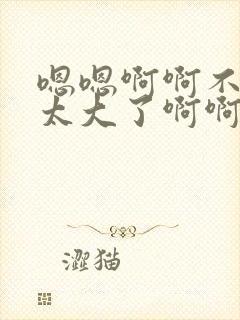 嗯嗯啊啊不
太大了啊啊
澀猫